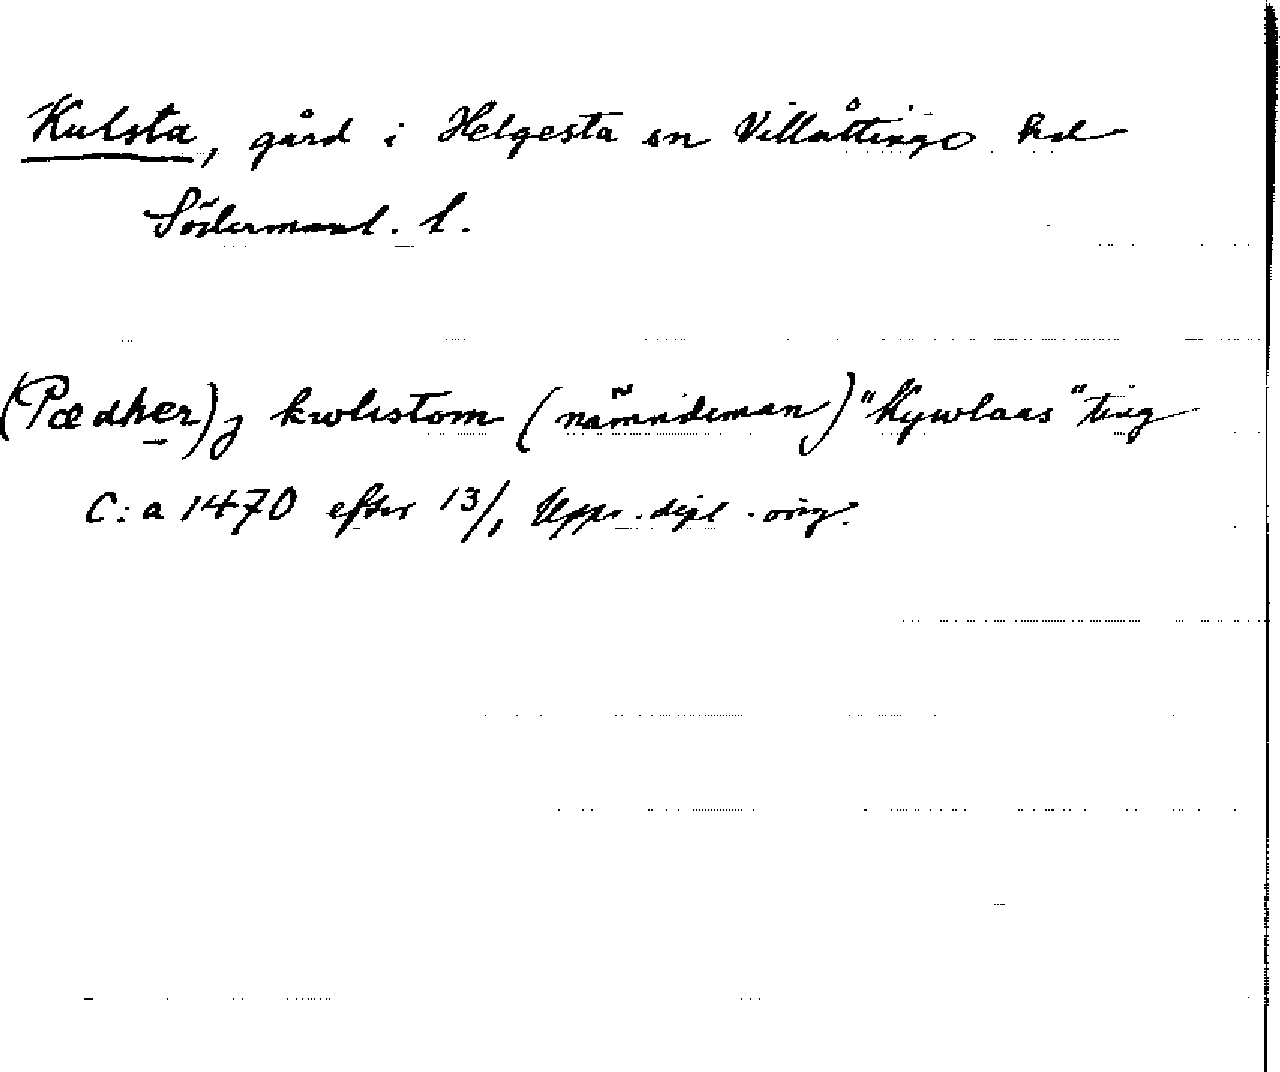 Kulsta, gård i Helgesta sn Villåttinge hd
Södermanl. l.
(Pædher) j kwlistom (nämndeman) "Kywlaas" ting
C:a 1470 efter 13/1 Upps. dipl. orig.